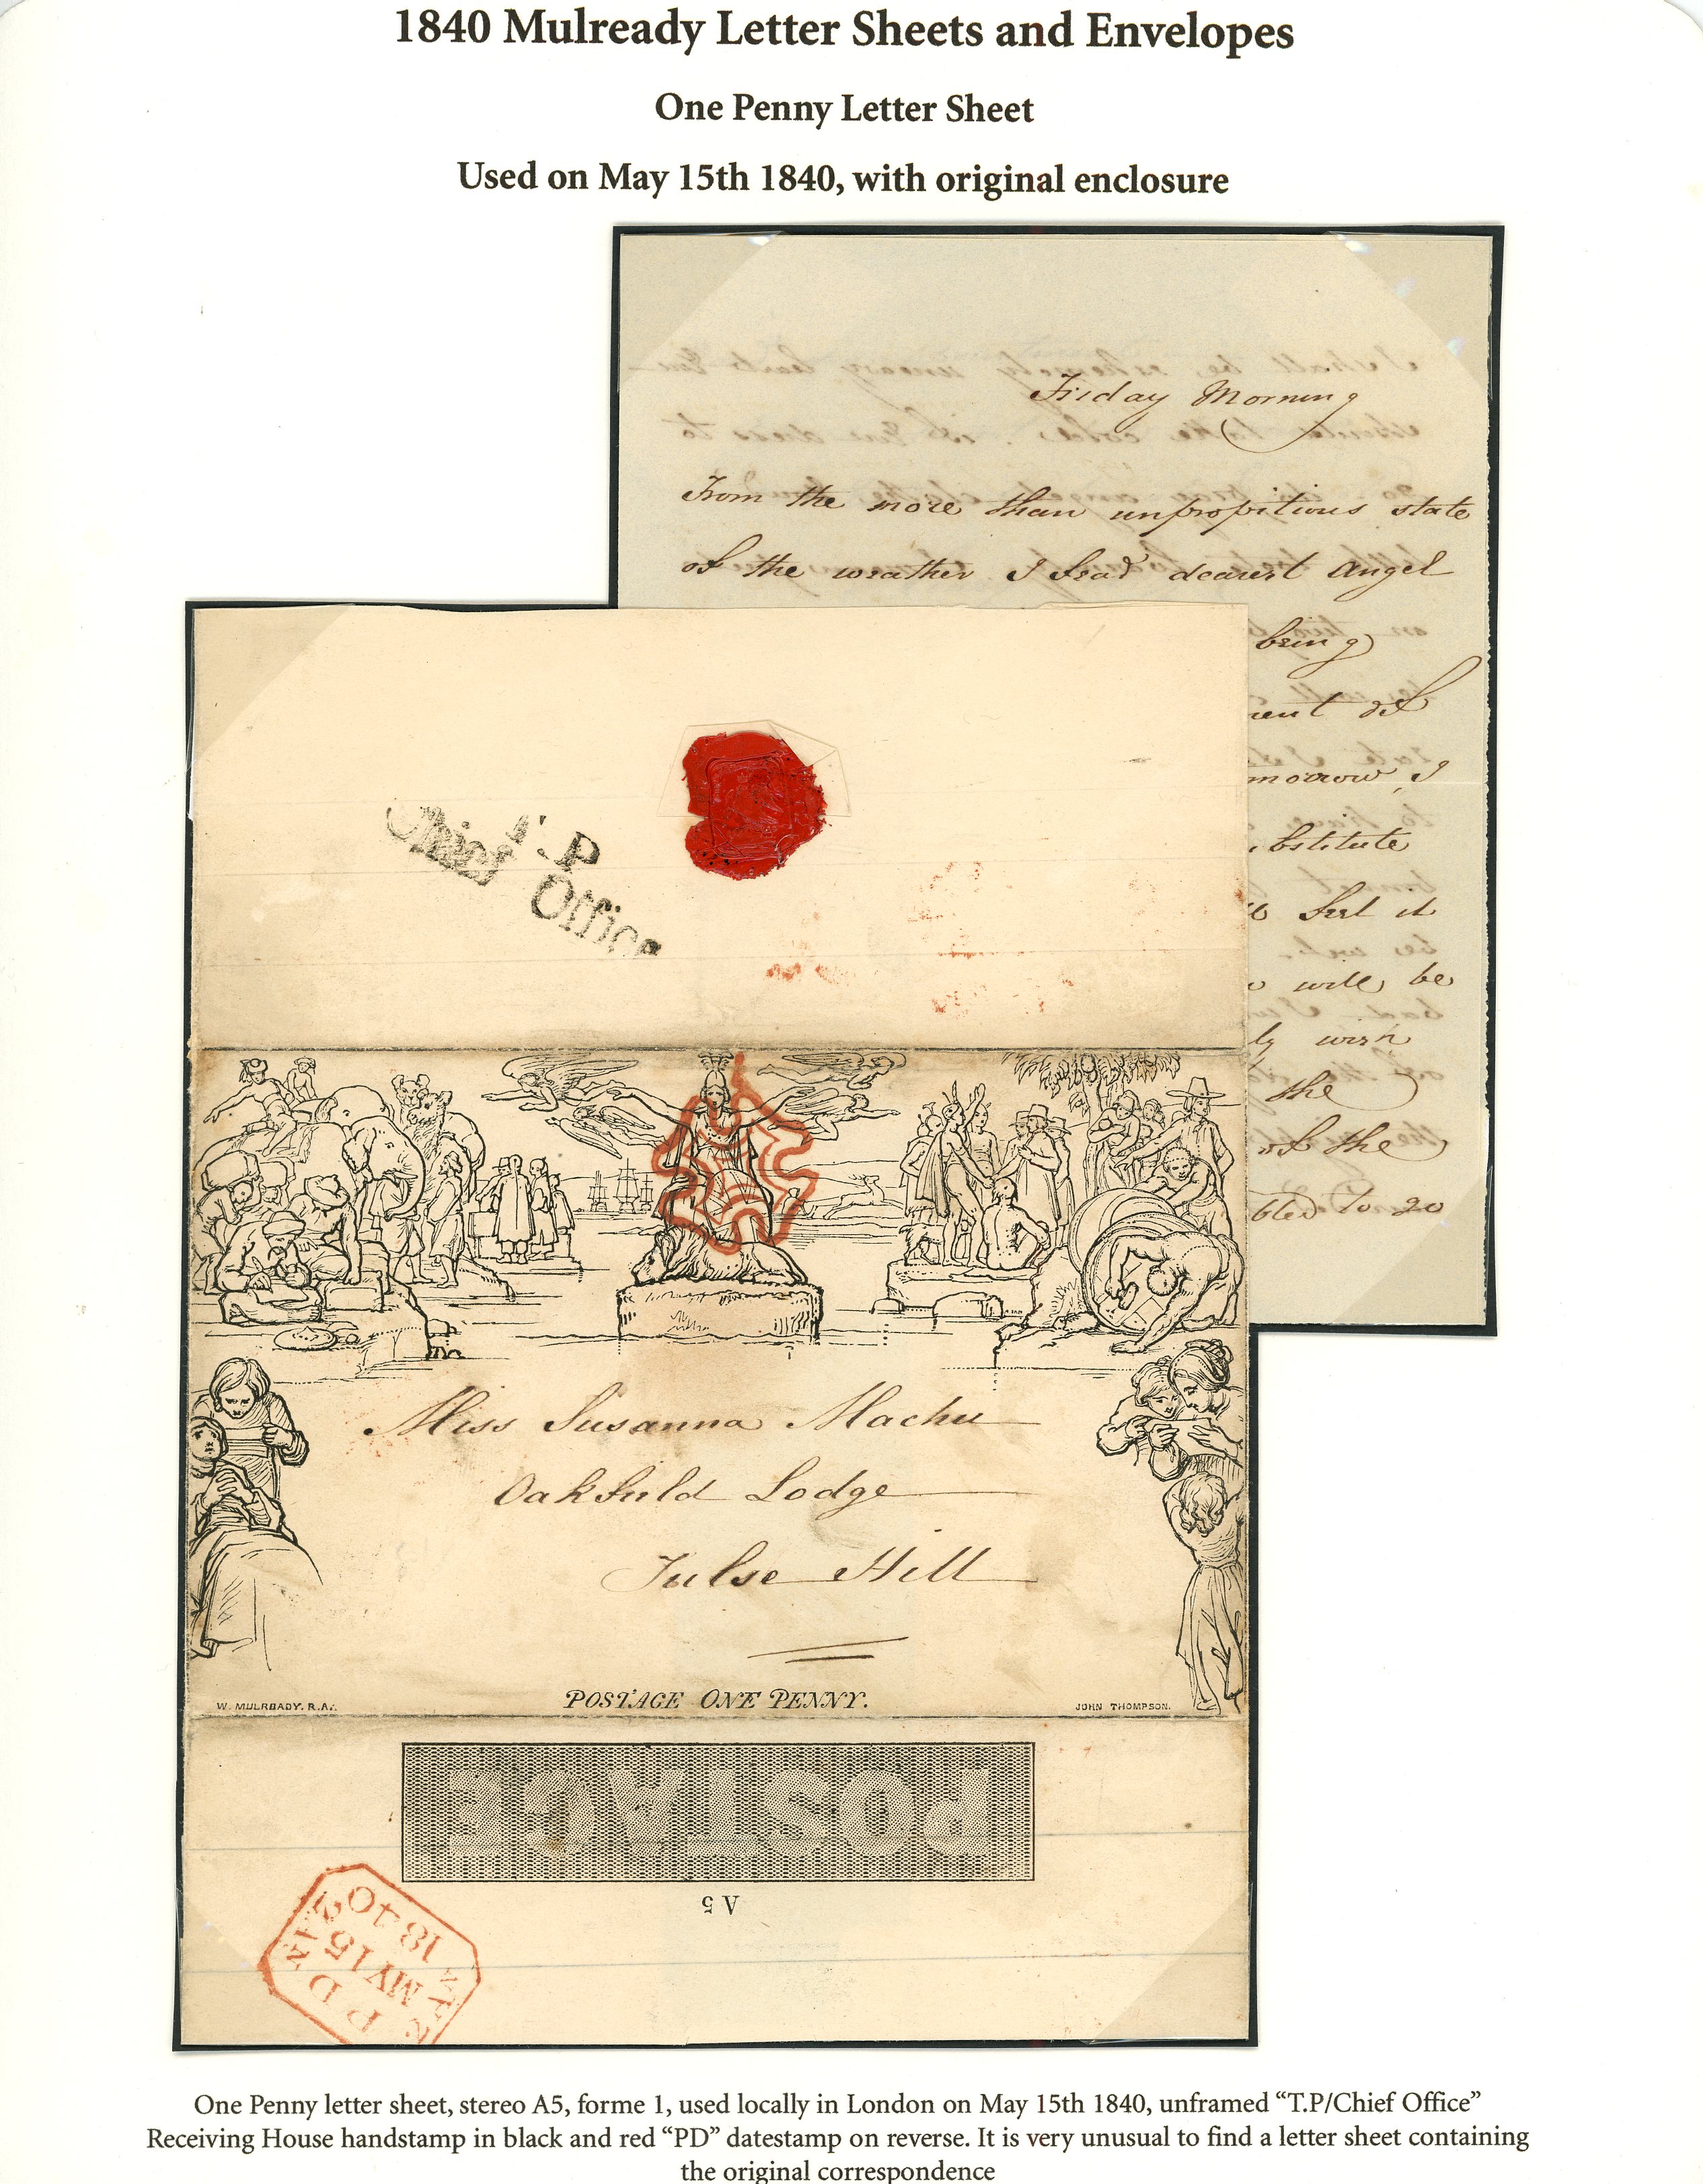 1840 Mulready Letter Sheets and Envelopes
One Penny Letter Sheet
Used on May 15th 1840, with original enclosure
Friday Morning
From the more than unpropitious state
of the weather I dearest Angel
being
of
morrow, I
feel it
will be
wish
the
of the
to go
T.P
Chief Office
Miss Susanna Machu
Oakfield Lodge
Tulse Hill
W. MULREADY. R.A.
POSTAGE ONE PENNY.
JOHN THOMPSON.
POSTAGE
A 5
P D
MY 15
1840
One Penny letter sheet, stereo A5, forme 1, used locally in London on May 15th 1840, unframed “T.P/Chief Office”
Receiving House handstamp in black and red “PD” datestamp on reverse. It is very unusual to find a letter sheet containing
the original correspondence